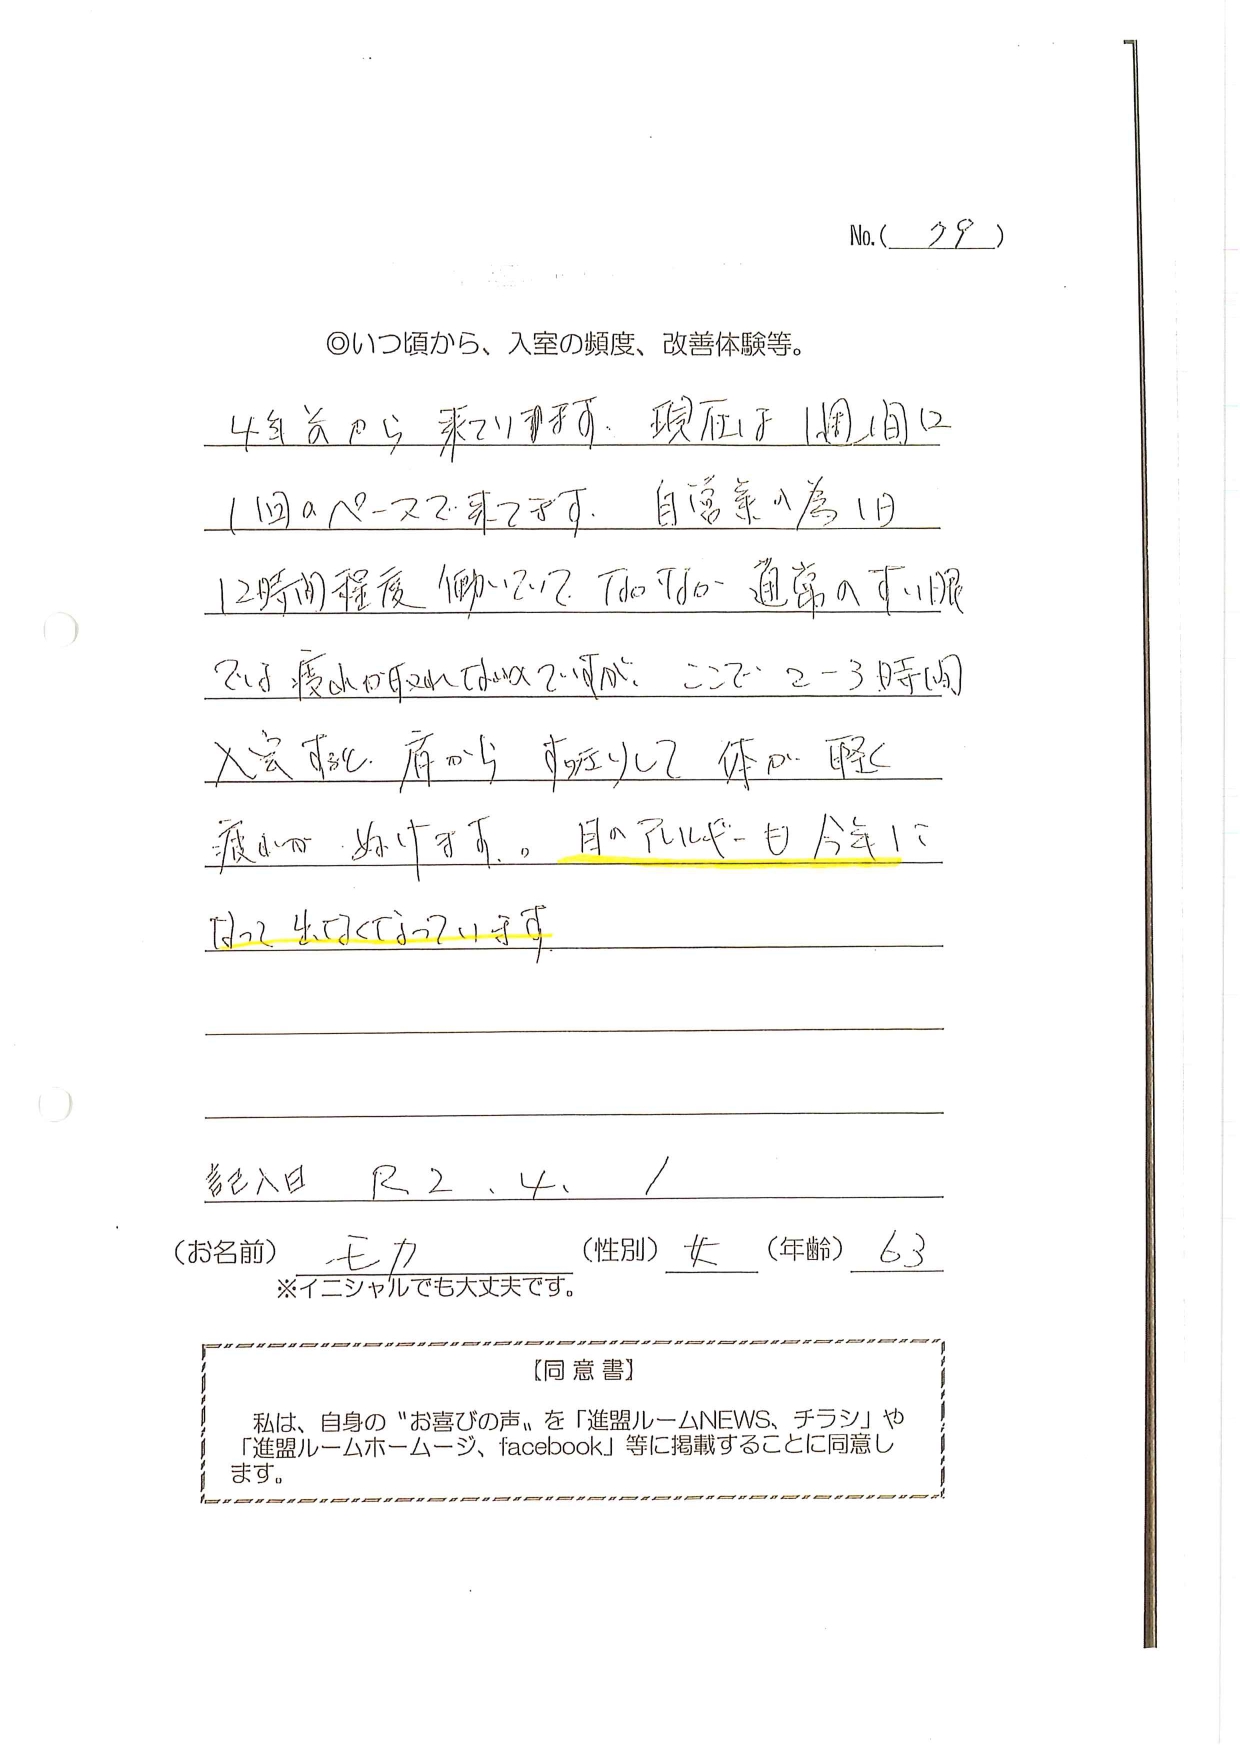 No.( 79 )
◎いつ頃から、入室の頻度、改善体験等。
4年前から 来ています。現在は 1週間に
1回のペースで来てます。自営業の為 1日
12時間程度 働いていて なかなか 通常のすい眠
では 疲れが取れないのですが、ここで 2-3時間
入室すると 肩から すっきりして 体が 軽く
疲れが ぬけます。。目のアレルギーも 今年に
なって 出なくなっています
記入日 R2.4.1
(お名前) モカ (性別) 女 (年齢) 63
※イニシャルでも大丈夫です。
【同意書】
私は、自身の〝お喜びの声〟を「進盟ルームNEWS、チラシ」や
「進盟ルームホームージ、facebook」等に掲載することに同意し
ます。